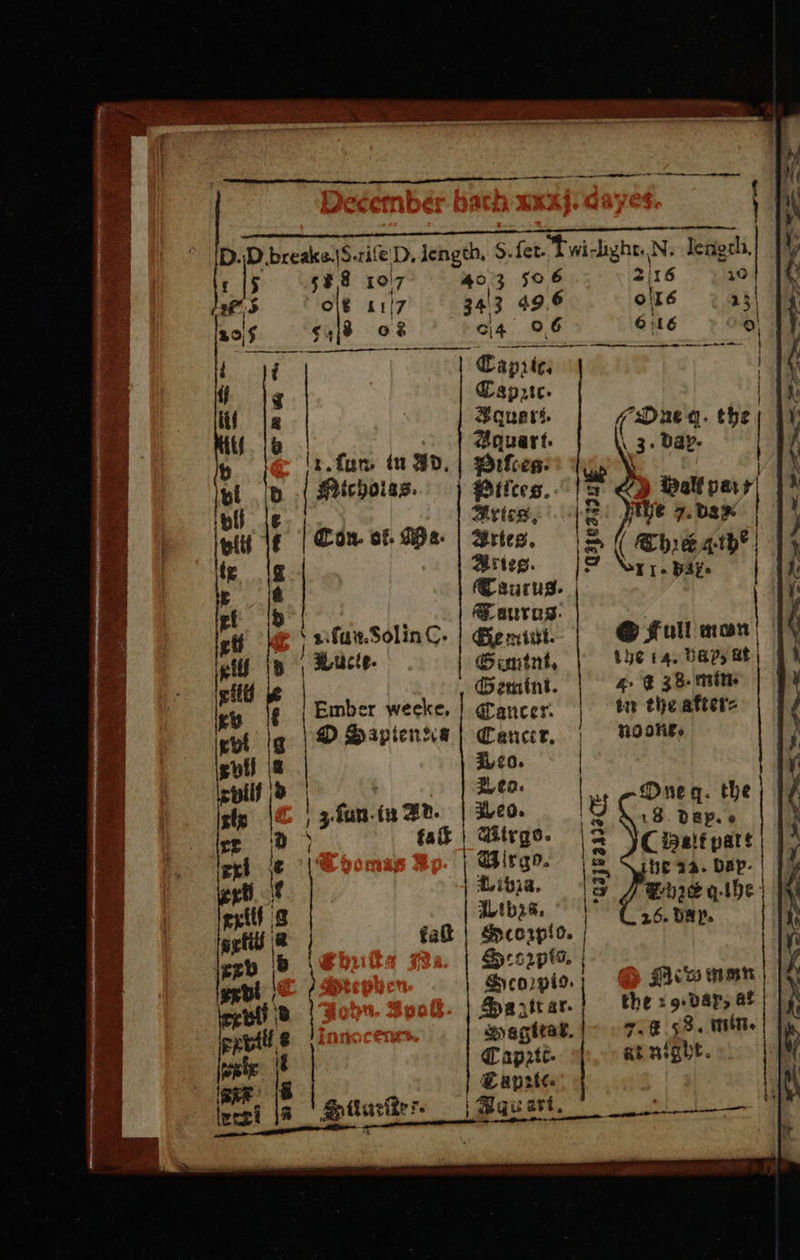 December hath xxxj. dayes.
D. D. breake. S. rise D. length. S. set. Twi-light. N. length.
1 5 58 8 10 7 40 3 50 6 2 16 20
5 0 8 11 7 34 3 49 6 0 16 23
20 5 54 8 0 8 0 4 0 6 6 16 0
i f Capric.
ij g Capric.
iij a Aquari.
iiij b Aquari.
v C 1. sun. in Ad. Pisces.
vi D Nicholas. Pisces.
vij e Aries.
viij f Con. of. Ma. Aries.
ix g Aries.
x a Taurus.
xi b Taurus.
xij C 2. sun. Solin C. Gemini.
xiij D Lucie. Gemini.
xiiij e Gemini.
xv f Ember weeke. Cancer.
xvi g O Sapientia Cancer.
xvij a Leo.
xviij b Leo.
xix C 3. sun. in Ad. Leo.
xx D fast Virgo.
xxi e Thomas Ap. Virgo.
xxij f Libra.
xxiij g Libra.
xxiiij a fast Scorpio.
xxv b Christs Na. Scorpio.
xxvi C Stephen. Scorpio.
xxvij D John. Apost. Sagitar.
xxviij e Innocents. Sagitar.
xxix f Capric.
xxx g Capric.
xxxi a Siluester. Aquari.
Increaseth
One q. the
3. day.
Half part
the 7. day
Three q. the
11. day.
Full moon
the 14. day, at
4. & 38. min.
in the after-
noone.
Decreaseth
One q. the
18. day.
Half part
the 22. day.
Three q. the
26. day.
New moon
the 29. day, at
7. & 58. min.
at night.